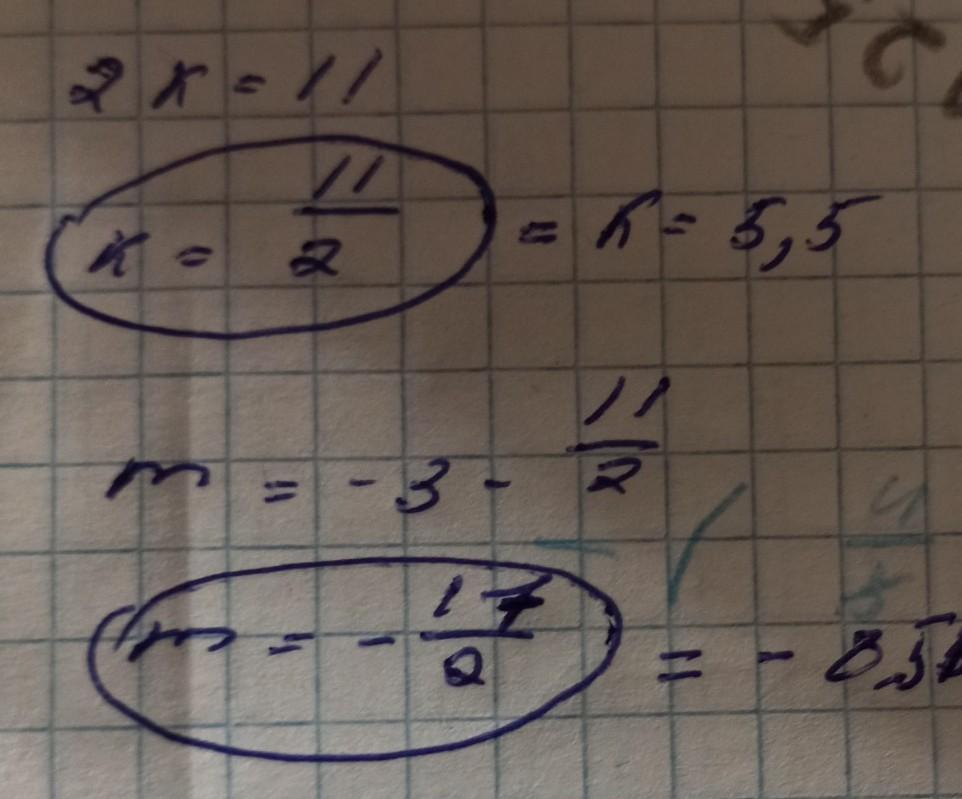 2k = 11
k = 11/2 = k = 5,5
m = -3 - 11/2
m = - 17/2 = - 8,5